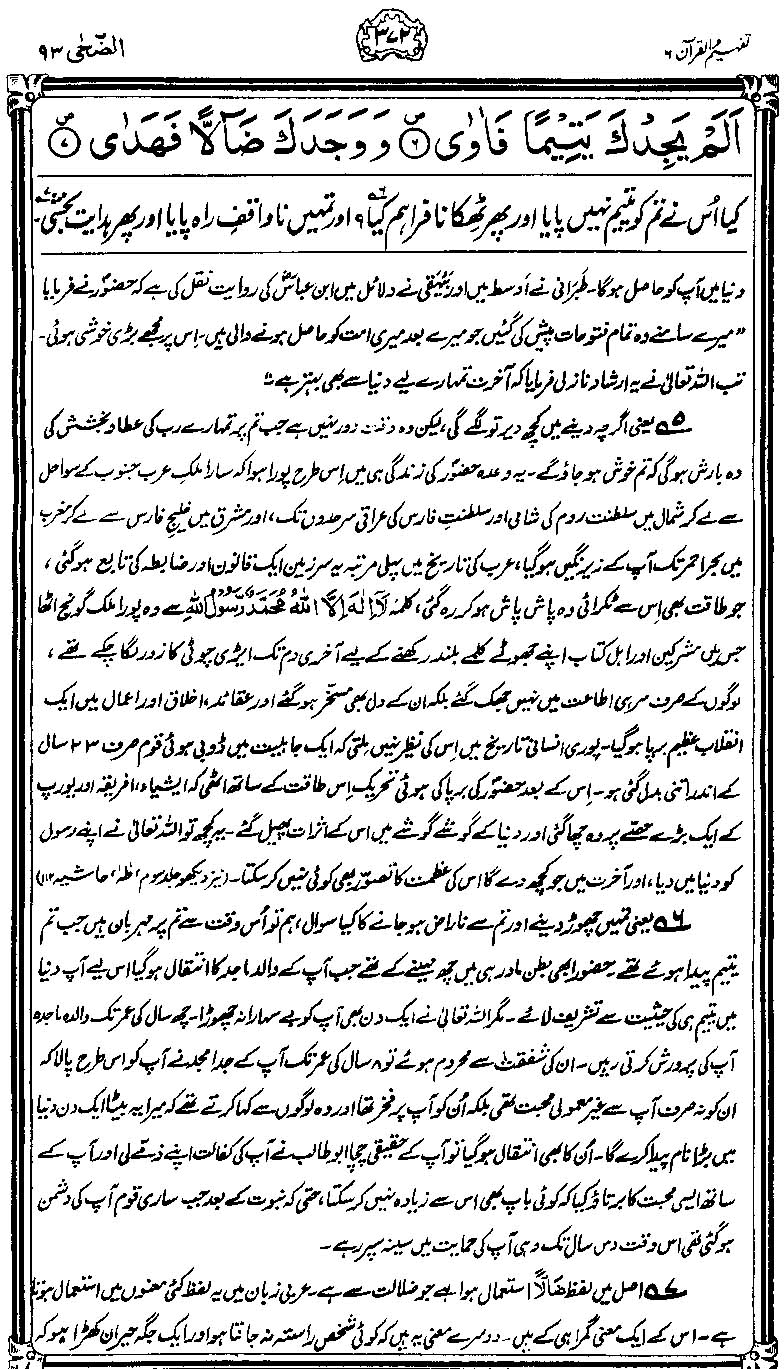 تفہیم القرآن ۶
۳۷۲
الضحٰی ۹۳
اَلَمْ یَجِدْكَ یَتِیْمًا فَاٰوٰی ۝۶ وَوَجَدَكَ ضَآلًّا فَهَدٰی ۝۷
کیا اُس نے تم کو یتیم نہیں پایا اور پھر ٹھکانا فراہم کیا؟ اور تمہیں ناواقفِ راہ پایا اور پھر ہدایت بخشی۔
دنیا میں آپ کو حاصل ہوگا۔ طَبَرانی نے اَوسط میں اور بَیْہَقی نے دلائل میں ابن عباسؓ کی روایت نقل کی ہے کہ حضورؐ نے فرمایا
”میرے سامنے وہ تمام فتوحات پیش کی گئیں جو میرے بعد میری امت کو حاصل ہونے والی ہیں۔ اِس پر مجھے بڑی خوشی ہوئی۔
تب اللہ تعالیٰ نے یہ ارشاد نازل فرمایا کہ آخرت تمہارے لیے دنیا سے بھی بہتر ہے“۔
۵ یعنی اگرچہ دینے میں کچھ دیر تو لگے گی، لیکن وہ وقت دور نہیں ہے جب تم پر تمہارے رب کی عطا و بخشش کی
وہ بارش ہوگی کہ تم خوش ہو جاؤ گے۔ یہ وعدہ حضورؐ کی زندگی ہی میں اِس طرح پورا ہوا کہ سارا ملکِ عرب جنوب کے سواحل
سے لے کر شمال میں سلطنت روم کی شامی اور سلطنتِ فارس کی عراقی سرحدوں تک، اور مشرق میں خلیج فارس سے لے کر مغرب
میں بحرِ احمر تک آپ کے زیرِ نگیں ہوگیا، عرب کی تاریخ میں پہلی مرتبہ یہ سرزمین ایک قانون اور ضابطہ کی تابع ہوگئی،
جو طاقت بھی اِس سے ٹکرائی وہ پاش پاش ہو کر رہ گئی، کلمۂ لَآ اِلٰهَ اِلَّا اللهُ مُحَمَّدٌ رَّسُوْلُ اللهِ سے وہ پورا ملک گونج اٹھا
جس میں مشرکین اور اہل کتاب اپنے جھوٹے کلمے بلند رکھنے کے لیے آخری دم تک ایڑی چوٹی کا زور لگا چکے تھے،
لوگوں کے صرف سر ہی اطاعت میں نہیں جھک گئے بلکہ ان کے دل بھی مسخّر ہو گئے اور عقائد، اخلاق اور اعمال میں ایک
انقلابِ عظیم برپا ہوگیا۔ پوری انسانی تاریخ میں اِس کی نظیر نہیں ملتی کہ ایک جاہلیت میں ڈوبی ہوئی قوم صرف ۲۳ سال
کے اندر اتنی بدل گئی ہو۔ اِس کے بعد حضورؐ کی برپا کی ہوئی تحریک اِس طاقت کے ساتھ اٹھی کہ ایشیاء، افریقہ اور یورپ
کے ایک بڑے حصّے پر وہ چھا گئی اور دنیا کے گوشے گوشے میں اس کے اثرات پھیل گئے۔ یہ کچھ تو اللہ تعالیٰ نے اپنے رسول
کو دنیا میں دیا، اور آخرت میں جو کچھ دے گا اس کی عظمت کا تصوّر بھی کوئی نہیں کر سکتا۔ (نیز دیکھو جلد سوم، طٰہٰ، حاشیہ ۱۱۲)
۶ یعنی تمہیں چھوڑ دینے اور تم سے ناراض ہو جانے کا کیا سوال، ہم تو اُس وقت سے تم پر مہربان ہیں جب تم
یتیم پیدا ہوئے تھے۔ حضورؐ ابھی بطن مادر ہی میں چھ مہینے کے تھے جب آپ کے والد ماجد کا انتقال ہوگیا اس لیے آپ دنیا
میں یتیم ہی کی حیثیت سے تشریف لائے۔ مگر اللہ تعالیٰ نے ایک دن بھی آپ کو بے سہارا نہ چھوڑا۔ چھ سال کی عمر تک والدہ ماجدہ
آپ کی پرورش کرتی رہیں۔ ان کی شفقت سے محروم ہوئے تو ۸ سال کی عمر تک آپ کے جدِ امجد نے آپ کو اس طرح پالا کہ
ان کو نہ صرف آپ سے غیر معمولی محبت تھی بلکہ اُن کو آپ پر فخر تھا اور وہ لوگوں سے کہا کرتے تھے کہ میرا یہ بیٹا ایک دن دنیا
میں بڑا نام پیدا کرے گا۔ اُن کا بھی انتقال ہوگیا تو آپ کے حقیقی چچا ابو طالب نے آپ کی کفالت اپنے ذمّے لی اور آپ کے
ساتھ ایسی محبت کا برتاؤ کیا کہ کوئی باپ بھی اس سے زیادہ نہیں کر سکتا، حتّٰی کہ نبوت کے بعد جب ساری قوم آپ کی دشمن
ہوگئی تھی اس وقت دس سال تک وہی آپ کی حمایت میں سینہ سپر رہے۔
۷ اصل میں لفظ ضَآلًّا استعمال ہوا ہے جو ضلالت سے ہے۔ عربی زبان میں یہ لفظ کئی معنوں میں استعمال ہوتا
ہے۔ اس کے ایک معنی گمراہی کے ہیں۔ دوسرے معنی یہ ہیں کہ کوئی شخص راستہ نہ جانتا ہو اور ایک جگہ حیران کھڑا ہو کہ